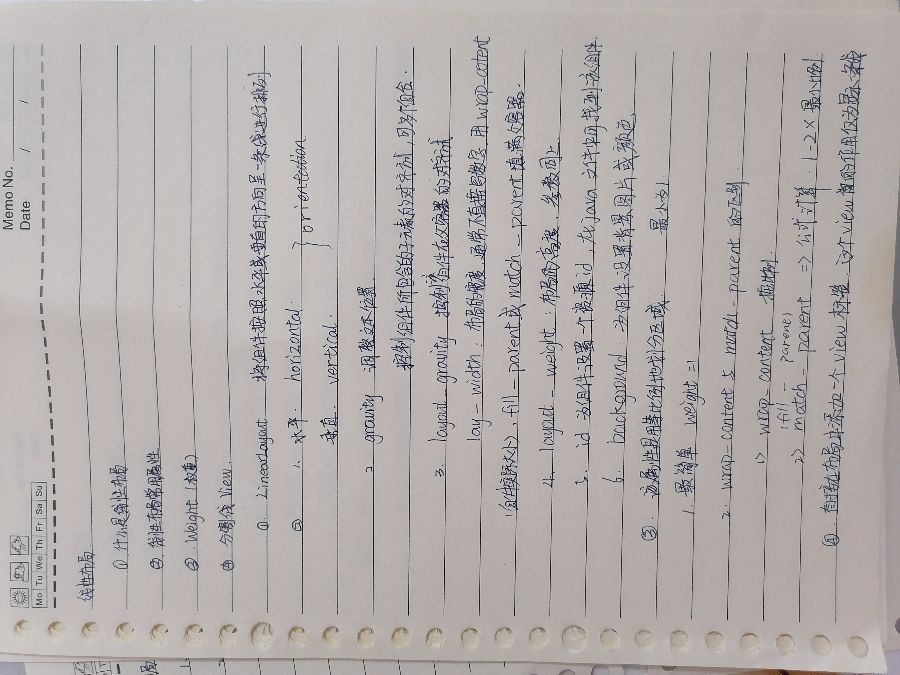 Memo No.
Date / /
Mo Tu We Th Fr Sa Su
线性布局
① 什么是线性布局
② 线性布局常用属性
③ Weight (权重)
④ 分离线 View
① LinearLayout 将组件按照水平或垂直的方向呈一条线进行排列
② 1. 水平 horizontal.
垂直 vertical. } orientation
2 gravity 调整文本位置
控制组件所包含的子元素的对齐方式,可多个组合.
3. layout_gravity 控制该组件在父容器的对齐方式
lay-width : 布局的宽度 通常不直接写数字 用wrap-content
(组件实际大小), fill-parent或match-parent填满父容器.
4. layout-weight : 布局的高度. 参数同上
5. id 为组件设置一个资源id, 在java文件中可找到该组件
6. background 为组件设置背景图片或颜色
③. 该属性是用等比例地划分区域 最小比例
1. 最简单 weight =1
2. wrap-content与match-parent的区别
1> wrap-content 按比例
(fill-parent)
2> match-parent => 公式计算. 1-2×最小比例
④. 直接在布局中添加一个view标签 这个view有的作用仅为显示分线